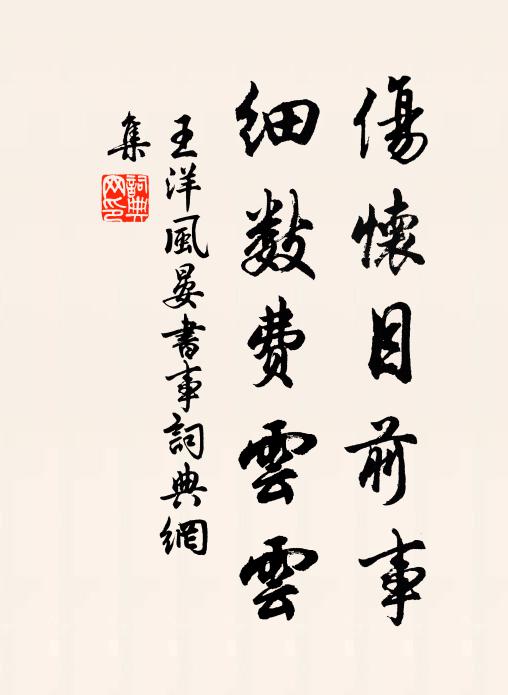 傷懷目前事
細數費雲雲
王洋風晏書事詞典網
集
詞典網印